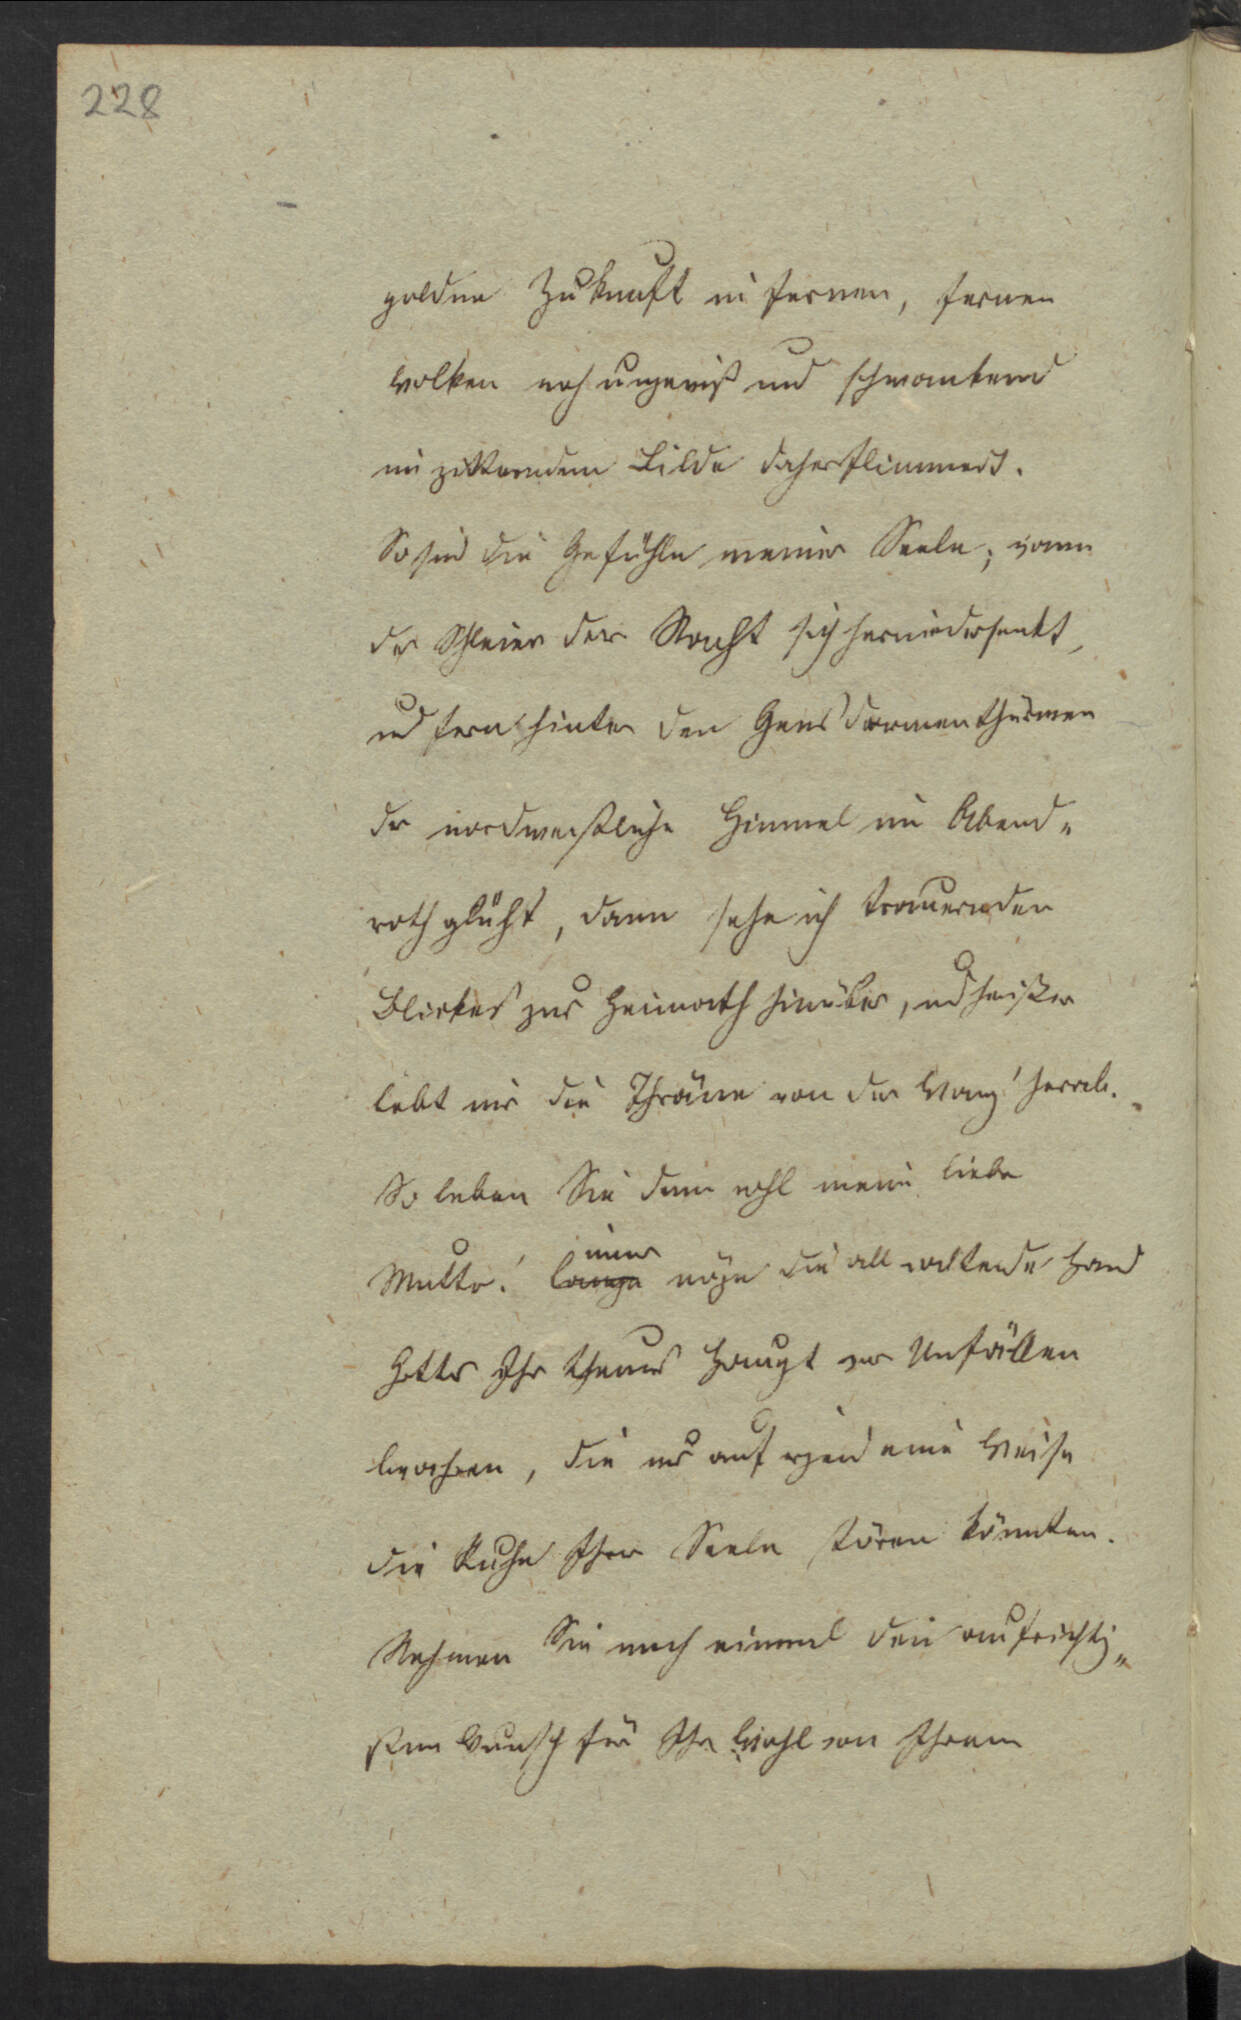 228
goldne Zukunft in fernen, fernen
Wolken noch ungewiß und schwankend
im zitternden Bilde daherflimmert.
So sind die Gefühle meiner Seele; wenn
der Schleier der Nacht sich herniedersenkt,
und fern hinter den Gens'darmenthürmen
der nordwestliche Himmel im Abend-
roth glüht, dann sehe ich trauernden
Blickes zur Heimath hinüber, und heißer
bebt mir die Thräne von der Wang' herab.
So leben Sie denn wohl meine liebe
immer
Mutter! lange möge die allwaltende Hand
Gottes Ihr theures Haupt vor Unfällen
bewahren, die nur auf irgend eine Weise
die Ruhe Ihrer Seele stören könnten.
Nehmen Sie noch einmal den aufrichtig-
sten Wunsch für Ihr Wohl von Ihrem